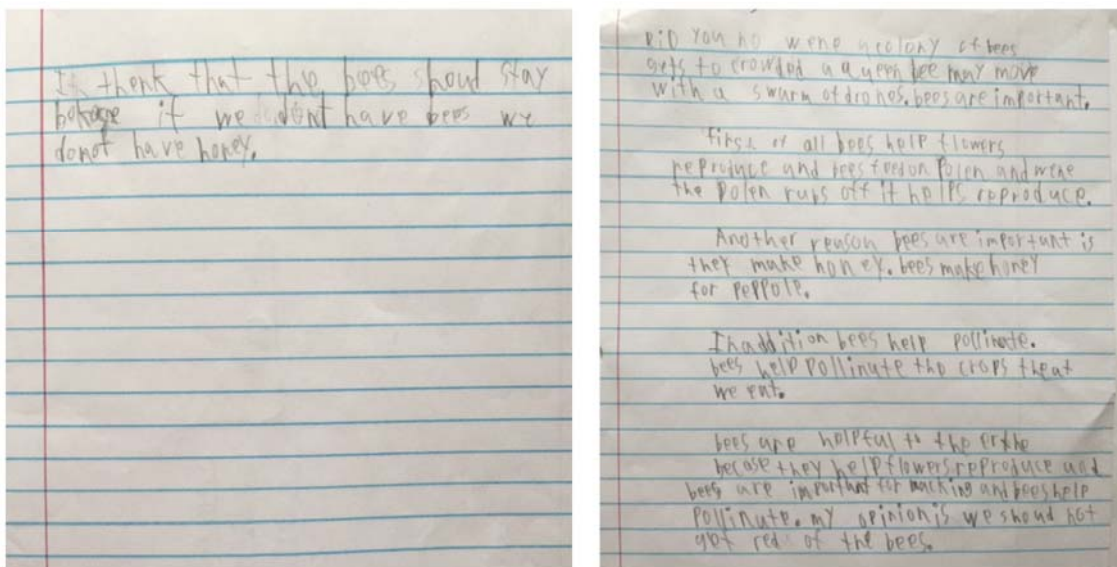 I thenk that the bees shoud stay
becase if we dont have bees we
donot have honey.
DiD You no wene a colony of bees
gets to crowded a queen bee may move
with a swarm of drones. bees are important.
first of all bees help flowers
reproduce and bees feed on Polen and wene
the Polen rubs off it helps reproduce.
Another reason bees are important is
they make honey. bees make honey
for Peppole.
In addition bees help pollinate.
bees help Pollinate the crops theat
we eat.
bees are helpful to the erthe
becase they help flowers reproduce and
bees are important for and bees help
Pollinate. my opinion is we should not
get red of the bees.